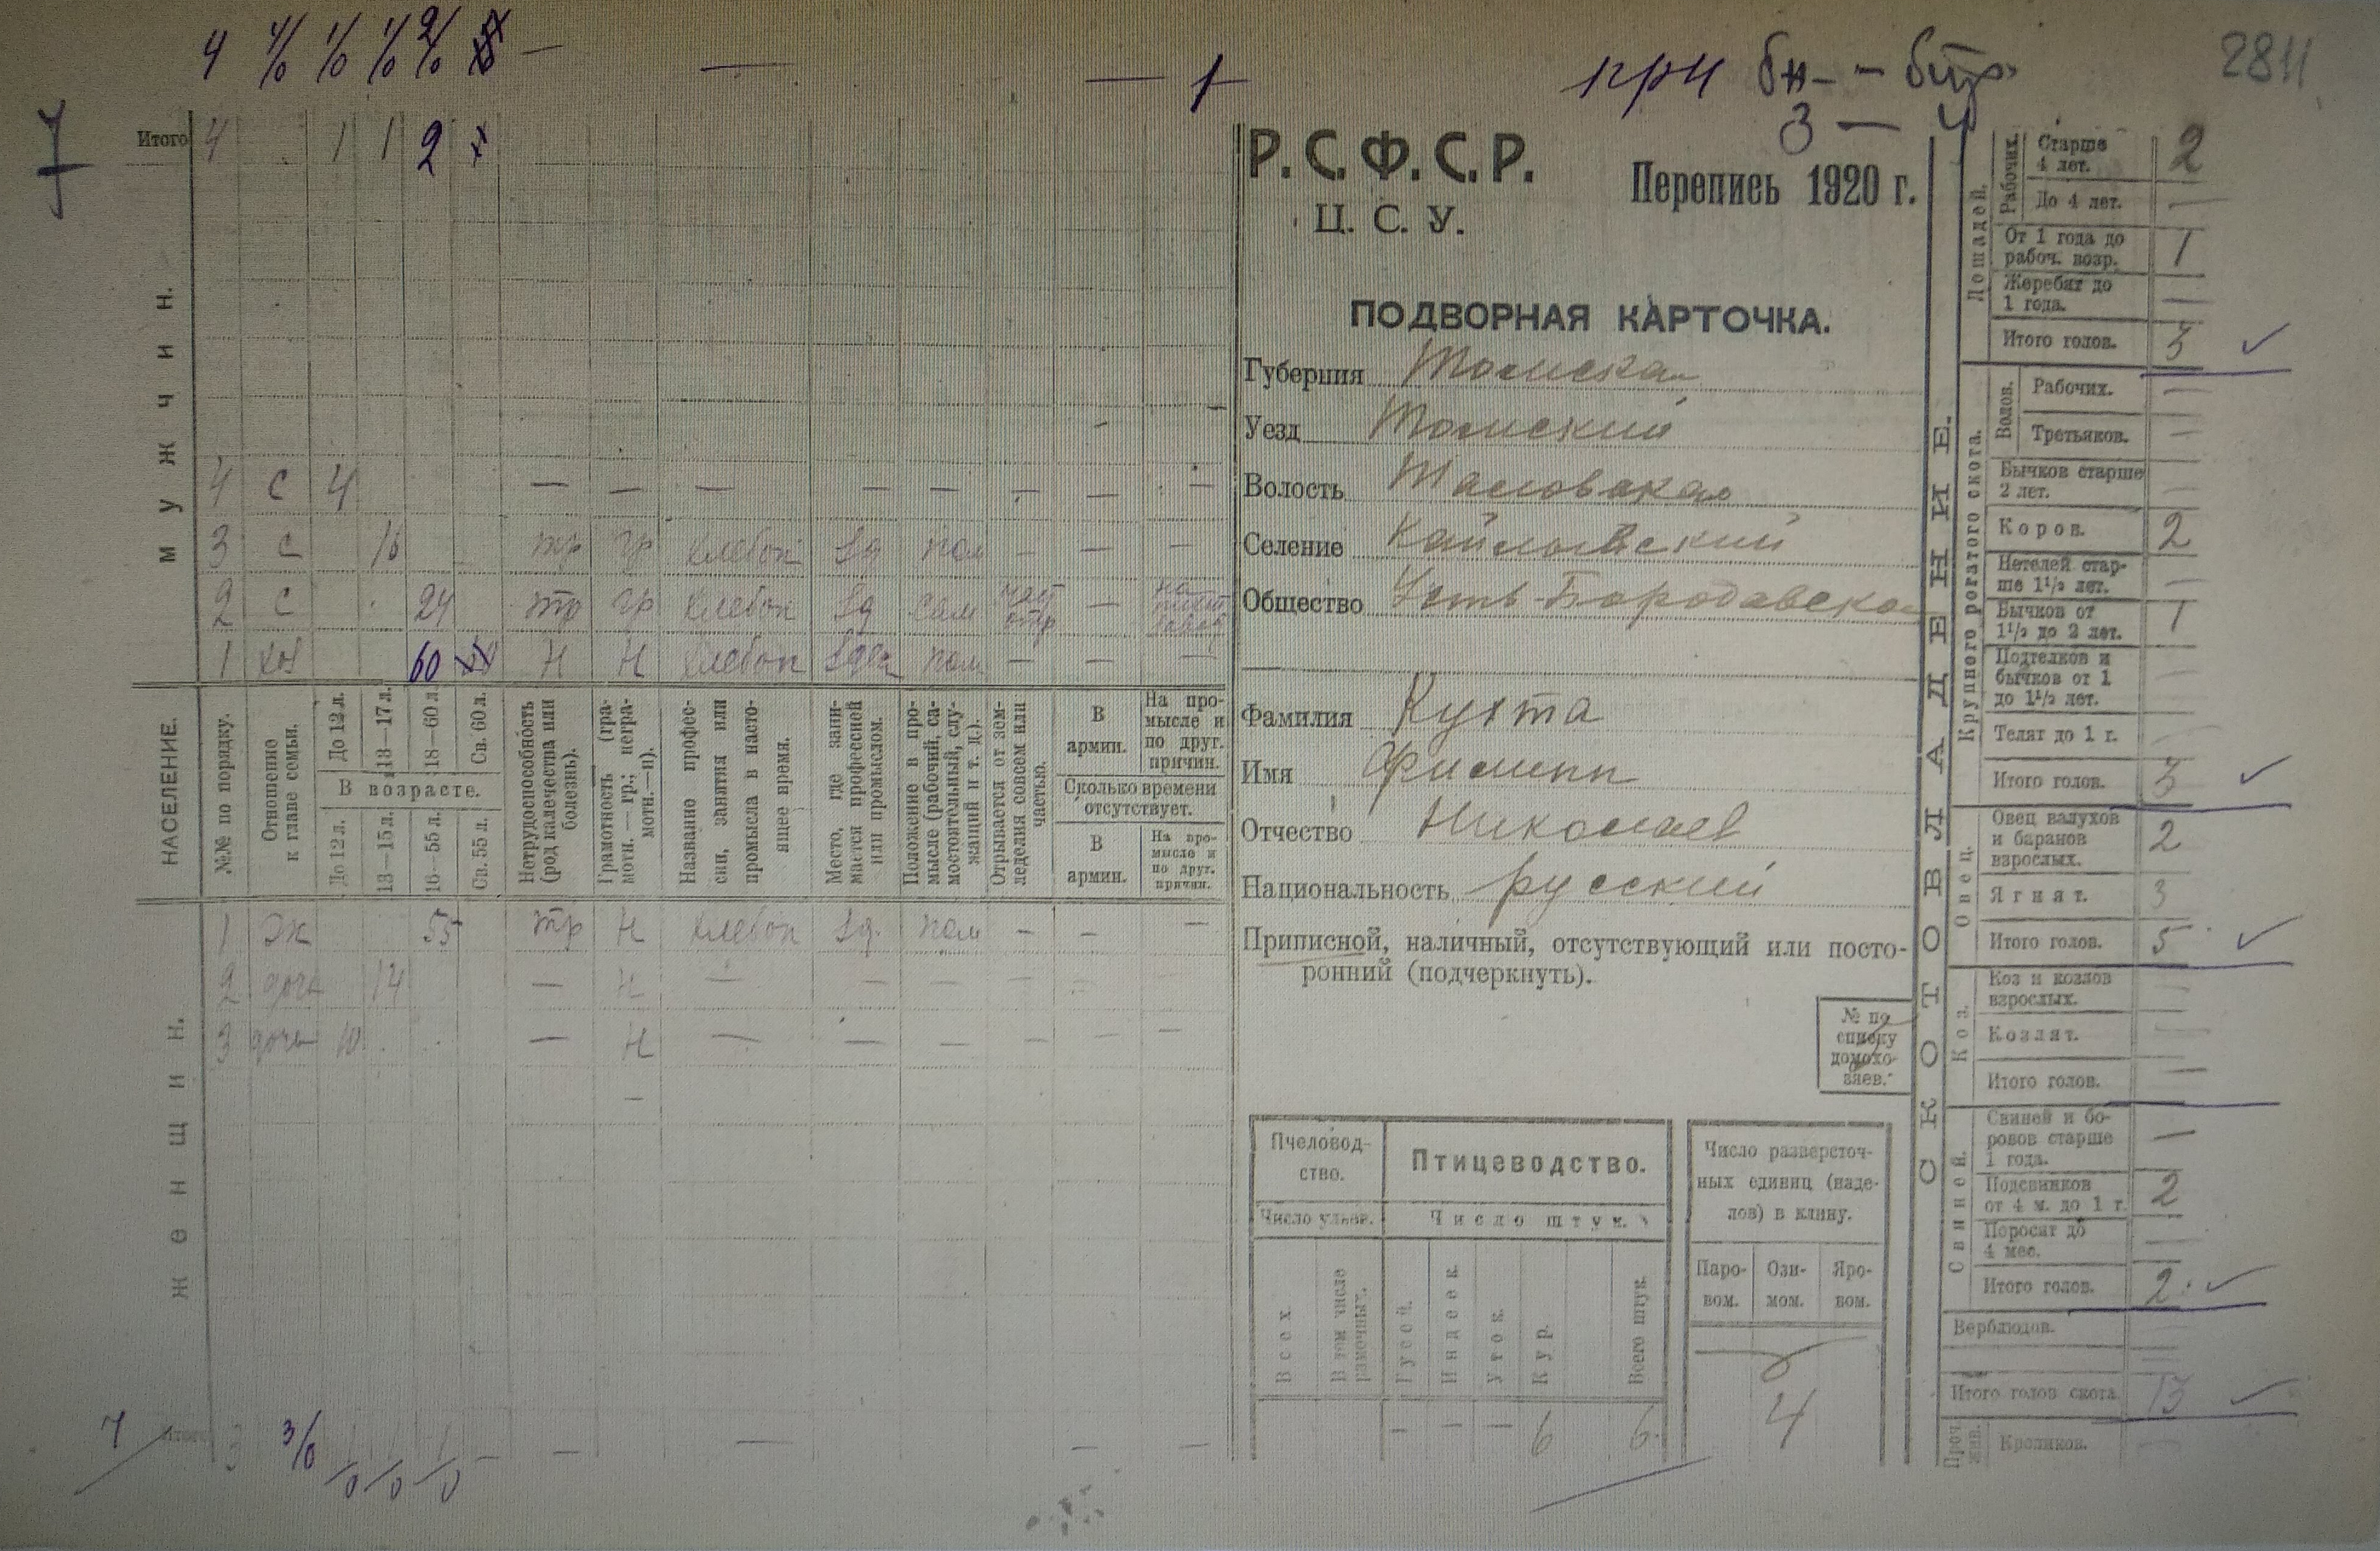 4 4/0 1/0 1/0 2/0 —
— — 1
при бн — — бтр.
3 — 4
2811
7
Итого 4 1 1 2
мужчин.
4 с 4 — — — — — — — —
3 с 16 тр гр хлебоп Sд пом — — —
2 с 24 тр гр хлебоп Sд сам част отр —
1 хоз 60 н н хлебоп Sдеш пом — — —
НАСЕЛЕНИЕ.
№№ по порядку.
Отношение к главе семьи.
До 12 л. 13—17 л. 18—60 л. Св. 60 л.
В возрасте.
До 12 л. 13—15 л. 16—55 л. Св. 55 л.
Нетрудоспособность (род калечества или болезнь).
Грамотность (грамотн. — гр.; неграмотн.—н).
Название профессии, занятия или промысла в настоящее время.
Место, где занимается профессией или промыслом.
Положение в промысле (рабочий, самостоятельный, служащий и т. д.).
Отрывается от земледелия совсем или частью.
В армии.
На промысле и по друг. причин.
Сколько времени отсутствует.
В армии.
На промысле и по друг. причин.
женщин.
1 ж 55 тр н хлебоп Sд. пом — — —
2 дочь 14 — н — — — —
3 дочь 10 — н — — — — — —
7 Итого 3 3/0 1/0 1/0 1/0 — — — — —
Р. С. Ф. С. Р.
Ц. С. У.
Перепись 1920 г.
ПОДВОРНАЯ КАРТОЧКА.
Губерния Томская
Уезд Томский
Волость
Селение
Общество Усть-Бородавское
Фамилия Кухта
Имя Филипп
Отчество Николаев
Национальность русский
Приписной, наличный, отсутствующий или посторонний (подчеркнуть).
№ по списку домохозяев.
Пчеловодство.
Число ульев.
Всех
В том числе рамочных.
Птицеводство.
Число штук.
Гусей. Индеек. Уток. Кур. Всего штук.
— — — 6 6.
Число разверсточных единиц (наделов) в клину.
Паровом. Озимом. Яровом.
4
СКОТОВЛАДЕНИЕ.
Лошадей.
Рабочих.
Старше 4 лет. 2
До 4 лет. —
От 1 года до рабоч. возр. 1
Жеребят до 1 года. —
Итого голов. 3
Крупного рогатого скота.
Волов.
Рабочих. —
Третьяков. —
Бычков старше 2 лет. —
Коров. 2
Нетелей старше 1½ лет. —
Бычков от 1½ до 2 лет. 1
Подтелков и бычков от 1 до 1½ лет. —
Телят до 1 г. —
Итого голов. 3
Овец.
Овец валухов и баранов взрослых. 2
Ягнят. 3
Итого голов. 5
Коз.
Коз и козлов взрослых. —
Козлят. —
Итого голов. —
Свиней.
Свиней и боровов старше 1 года. —
Подсвинков от 4 м. до 1 г. 2
Поросят до 4 мес. —
Итого голов. 2
Верблюдов. —
Итого голов скота 13
Проч. жив.
Кроликов. —